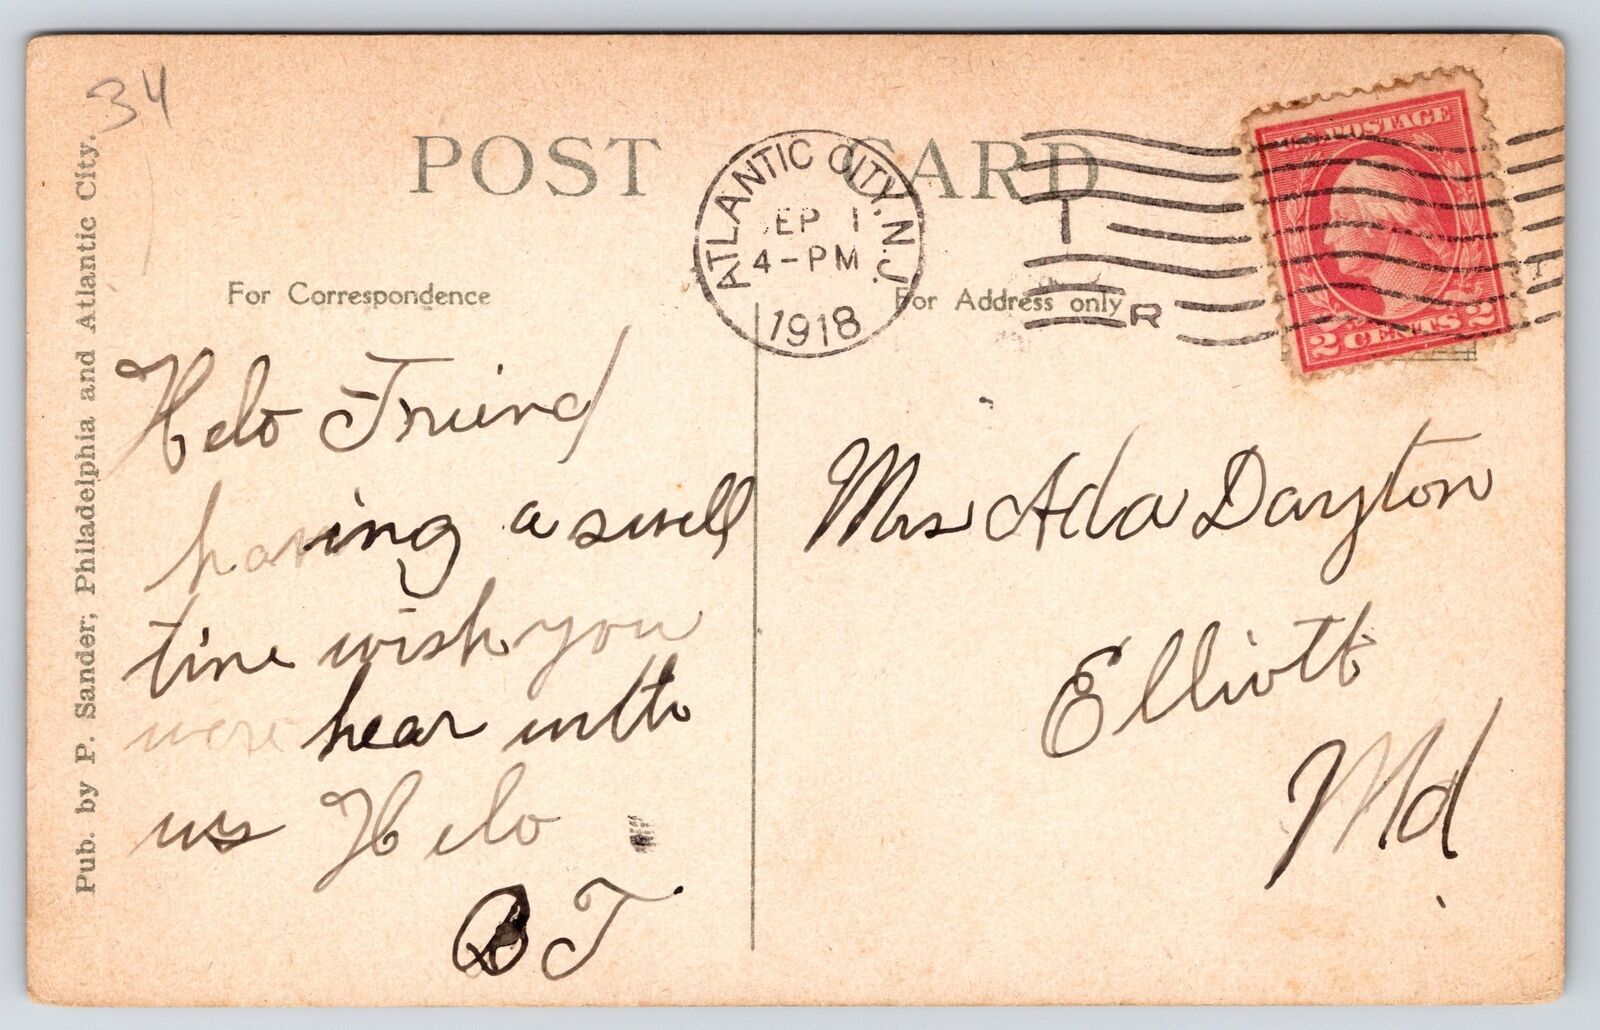 34
POST CARD
ATLANTIC CITY, N.J.
SEP 1
4-PM
1918
U.S. POSTAGE
2 CENTS 2
For Correspondence
For Address only
R
Pub. by P. Sander; Philadelphia and Atlantic City.
Helo Friend
having a swell
time wish you
were hear with
us Helo
B T
Mrs Ada Dayton
Elliott
Md